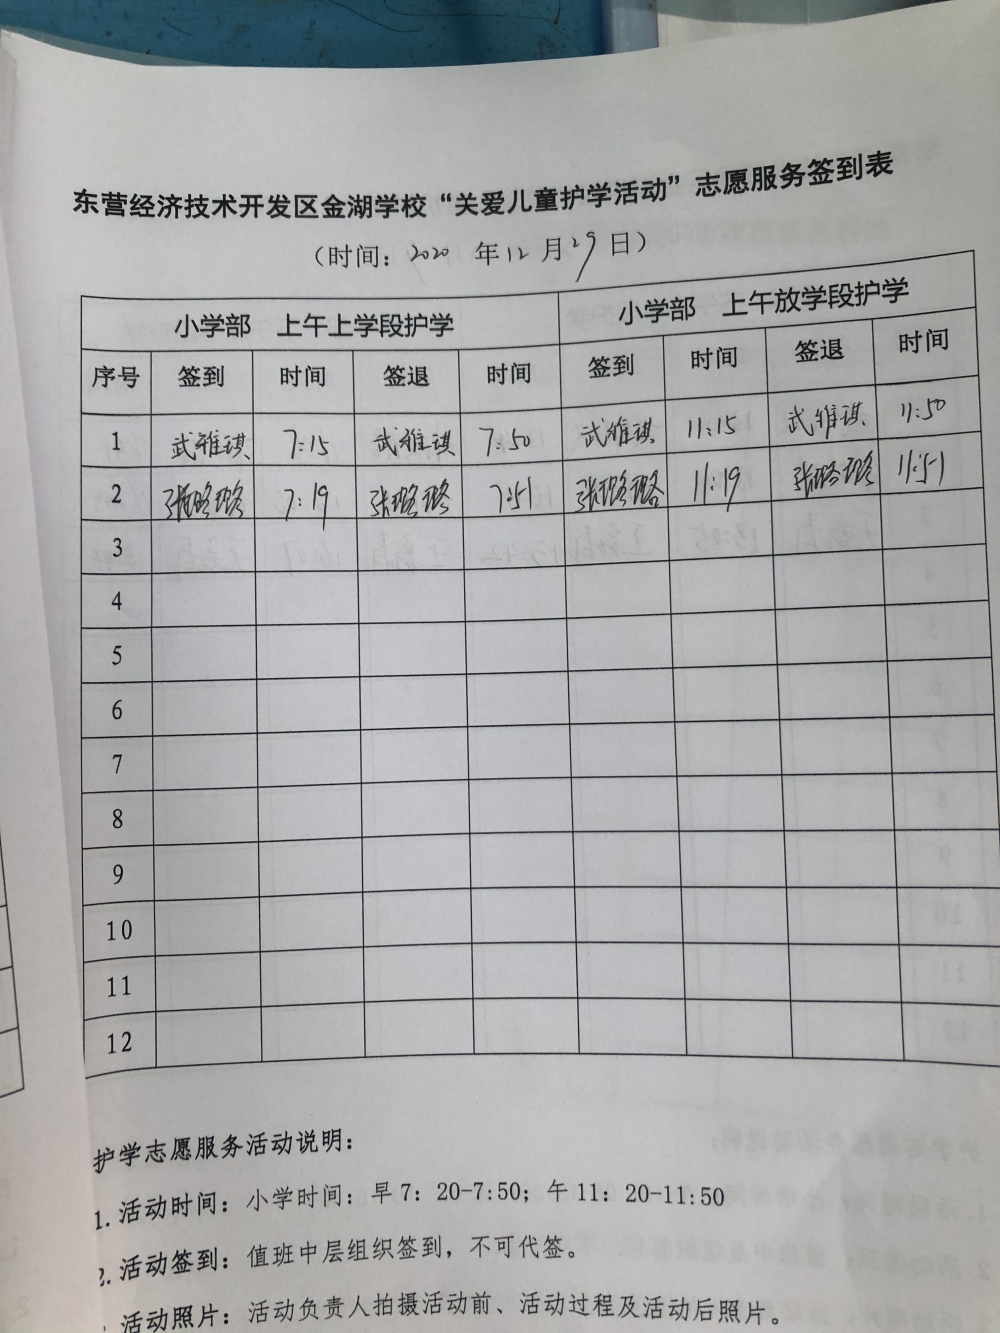 东营经济技术开发区金湖学校“关爱儿童护学活动”志愿服务签到表
（时间：2020 年12 月29日）
小学部 上午上学段护学 小学部 上午放学段护学
序号 签到 时间 签退 时间 签到 时间 签退 时间
1 武雅琪 7:15 武雅琪 7:50 武雅琪 11:15 武雅琪 11:50
2 张璐璐 7:19 张璐璐 7:51 张璐璐 11:19 张璐璐 11:51
3
4
5
6
7
8
9
10
11
12
护学志愿服务活动说明：
1. 活动时间：小学时间：早7：20-7:50；午11：20-11:50
2. 活动签到：值班中层组织签到，不可代签。
活动照片：活动负责人拍摄活动前、活动过程及活动后照片。